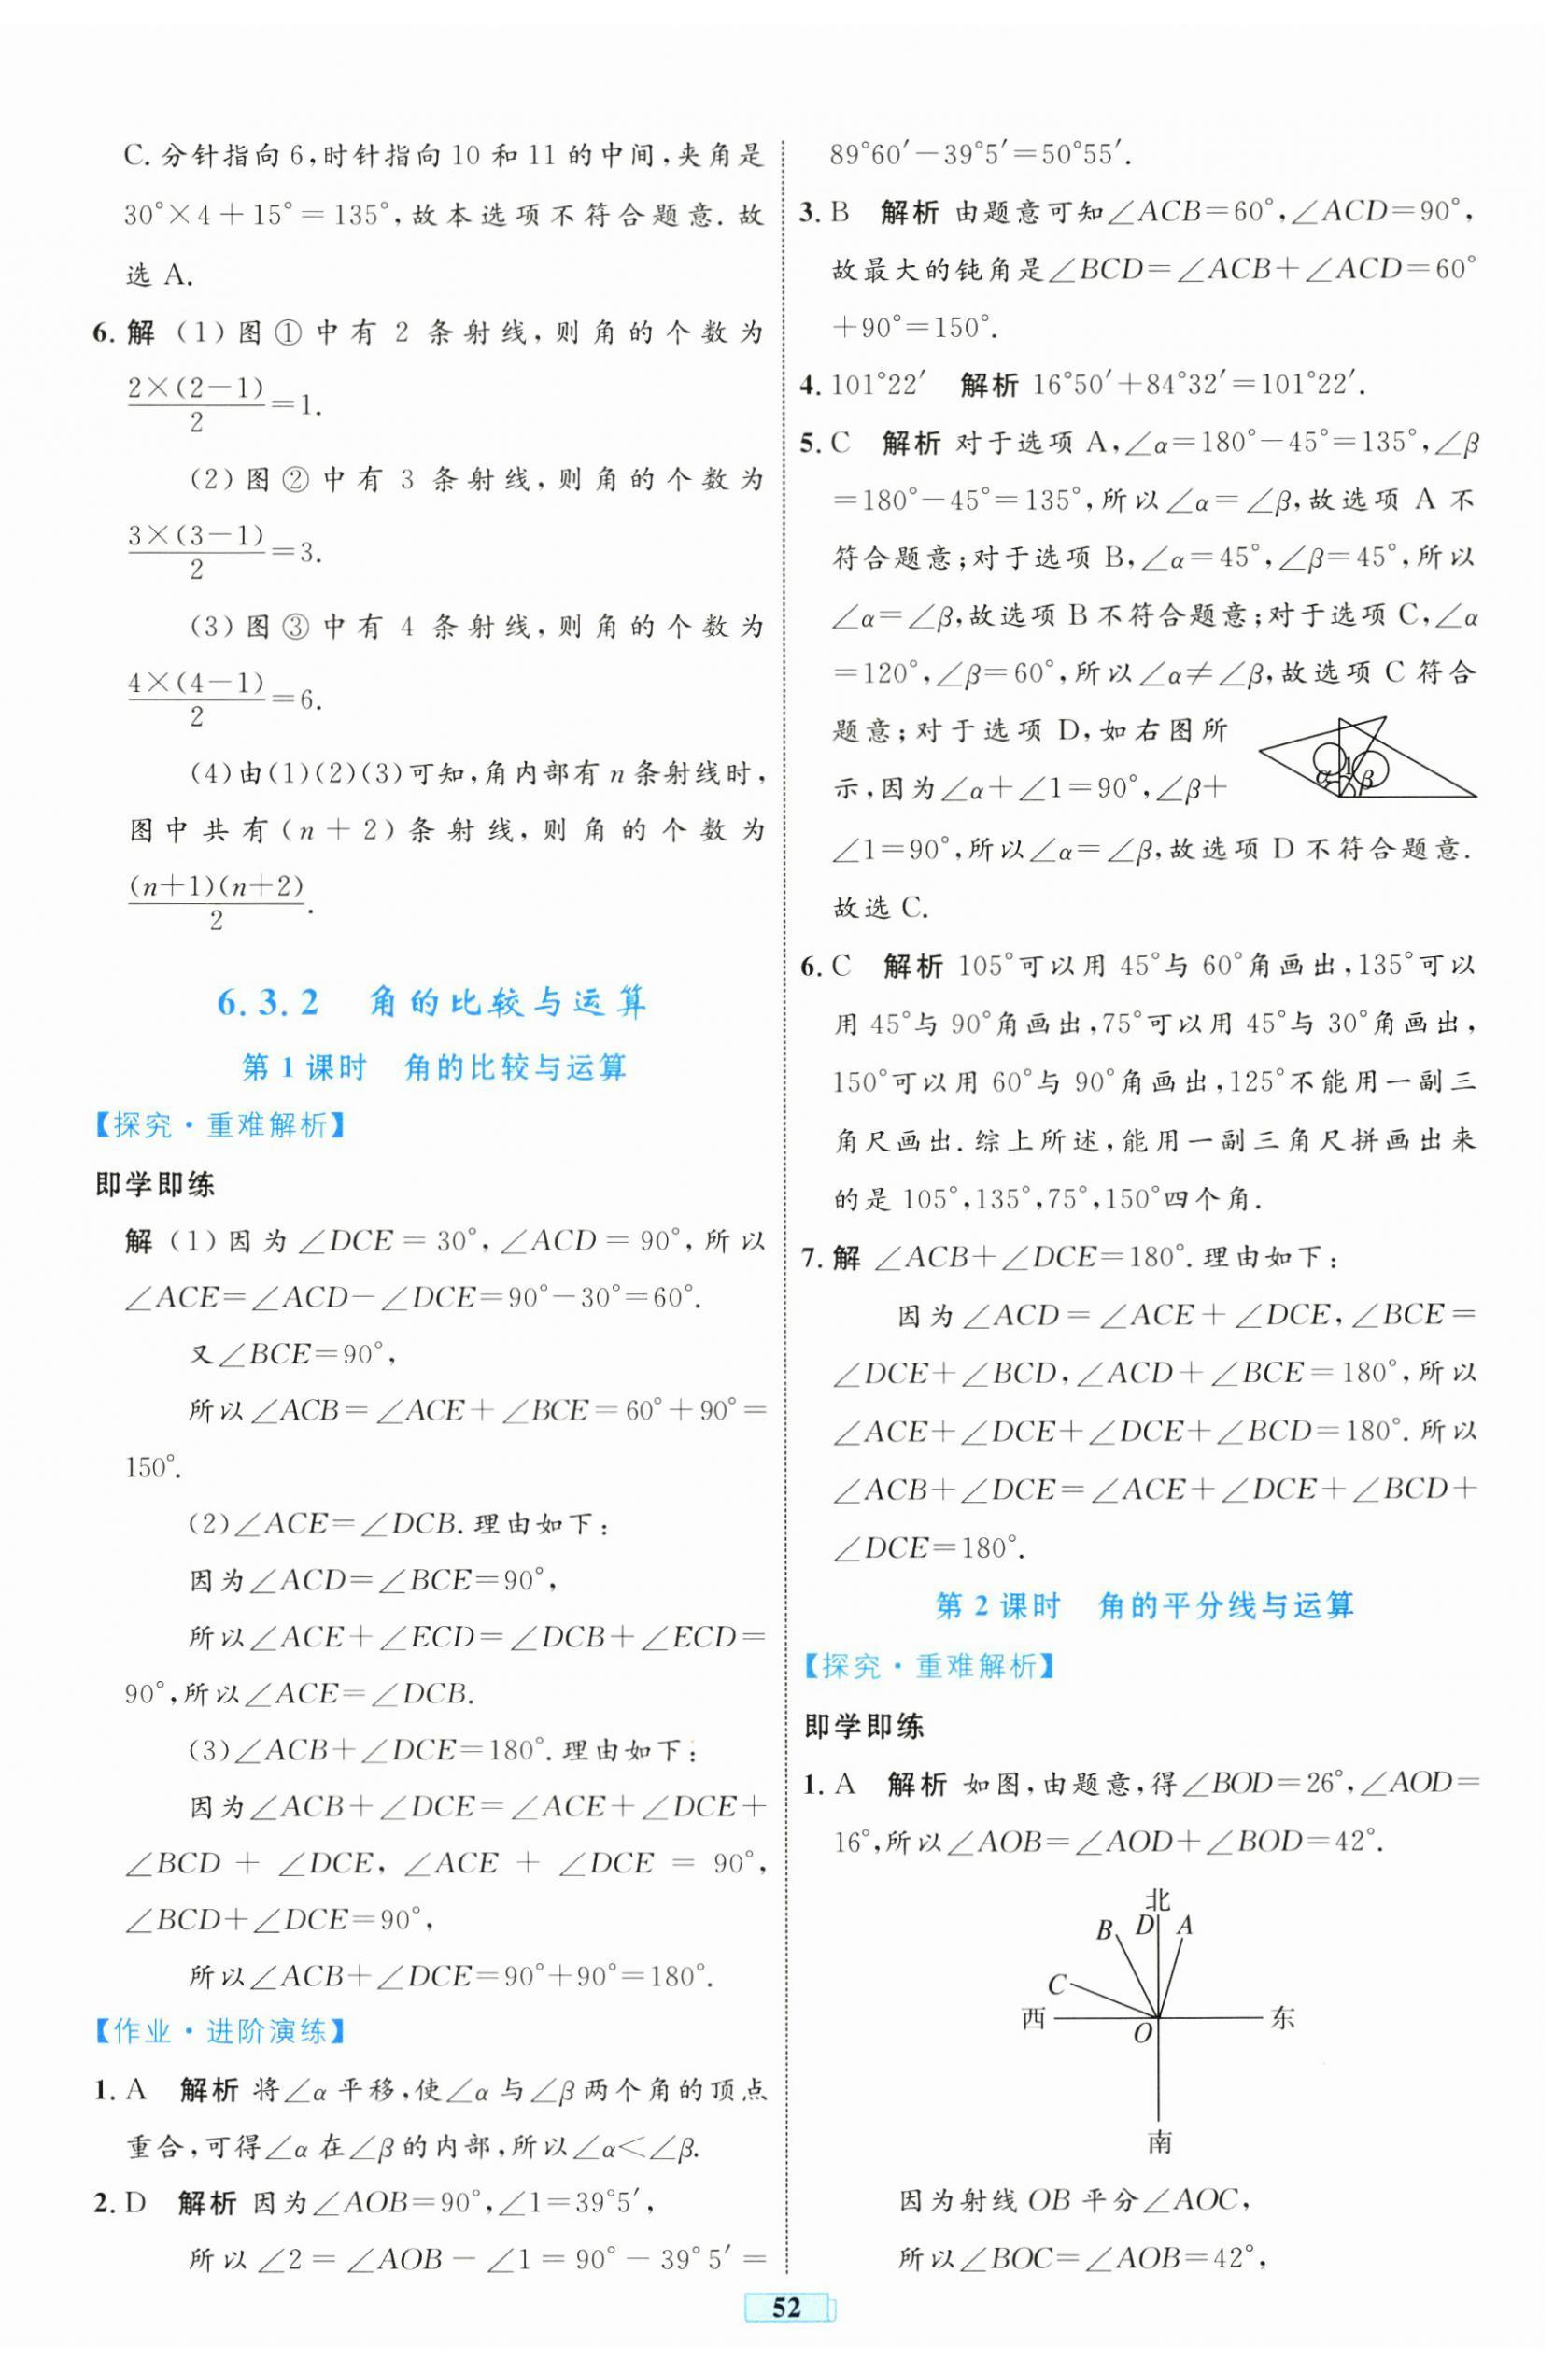 C.分针指向6,时针指向10和11的中间,夹角是
30°×4+15°=135°,故本选项不符合题意.故
选A.
6.解 (1)图①中有2条射线,则角的个数为
2×(2-1)/2=1.
(2)图②中有3条射线,则角的个数为
3×(3-1)/2=3.
(3)图③中有4条射线,则角的个数为
4×(4-1)/2=6.
(4)由(1)(2)(3)可知,角内部有n条射线时,
图中共有(n+2)条射线,则角的个数为
(n+1)(n+2)/2.
6.3.2 角的比较与运算
第1课时 角的比较与运算
【探究·重难解析】
即学即练
解 (1)因为∠DCE=30°,∠ACD=90°,所以
∠ACE=∠ACD-∠DCE=90°-30°=60°.
又∠BCE=90°,
所以∠ACB=∠ACE+∠BCE=60°+90°=
150°.
(2)∠ACE=∠DCB.理由如下:
因为∠ACD=∠BCE=90°,
所以∠ACE+∠ECD=∠DCB+∠ECD=
90°,所以∠ACE=∠DCB.
(3)∠ACB+∠DCE=180°.理由如下:
因为∠ACB+∠DCE=∠ACE+∠DCE+
∠BCD+∠DCE,∠ACE+∠DCE=90°,
∠BCD+∠DCE=90°,
所以∠ACB+∠DCE=90°+90°=180°.
【作业·进阶演练】
1.A 解析 将∠α平移,使∠α与∠β两个角的顶点
重合,可得∠α在∠β的内部,所以∠α<∠β.
2.D 解析 因为∠AOB=90°,∠1=39°5′,
所以∠2=∠AOB-∠1=90°-39°5′=
89°60′-39°5′=50°55′.
3.B 解析 由题意可知∠ACB=60°,∠ACD=90°,
故最大的钝角是∠BCD=∠ACB+∠ACD=60°
+90°=150°.
4.101°22′ 解析 16°50′+84°32′=101°22′.
5.C 解析 对于选项A,∠α=180°-45°=135°,∠β
=180°-45°=135°,所以∠α=∠β,故选项A不
符合题意;对于选项B,∠α=45°,∠β=45°,所以
∠α=∠β,故选项B不符合题意;对于选项C,∠α
=120°,∠β=60°,所以∠α≠∠β,故选项C符合
题意;对于选项D,如右图所
示,因为∠α+∠1=90°,∠β+
α 1 β
∠1=90°,所以∠α=∠β,故选项D不符合题意.
故选C.
6.C 解析 105°可以用45°与60°角画出,135°可以
用45°与90°角画出,75°可以用45°与30°角画出,
150°可以用60°与90°角画出,125°不能用一副三
角尺画出.综上所述,能用一副三角尺拼画出来
的是105°,135°,75°,150°四个角.
7.解 ∠ACB+∠DCE=180°.理由如下:
因为∠ACD=∠ACE+∠DCE,∠BCE=
∠DCE+∠BCD,∠ACD+∠BCE=180°,所以
∠ACE+∠DCE+∠DCE+∠BCD=180°.所以
∠ACB+∠DCE=∠ACE+∠DCE+∠BCD+
∠DCE=180°.
第2课时 角的平分线与运算
【探究·重难解析】
即学即练
1.A 解析 如图,由题意,得∠BOD=26°,∠AOD=
16°,所以∠AOB=∠AOD+∠BOD=42°.
北
B D A
C
西 O 东
南
因为射线OB平分∠AOC,
所以∠BOC=∠AOB=42°,
52